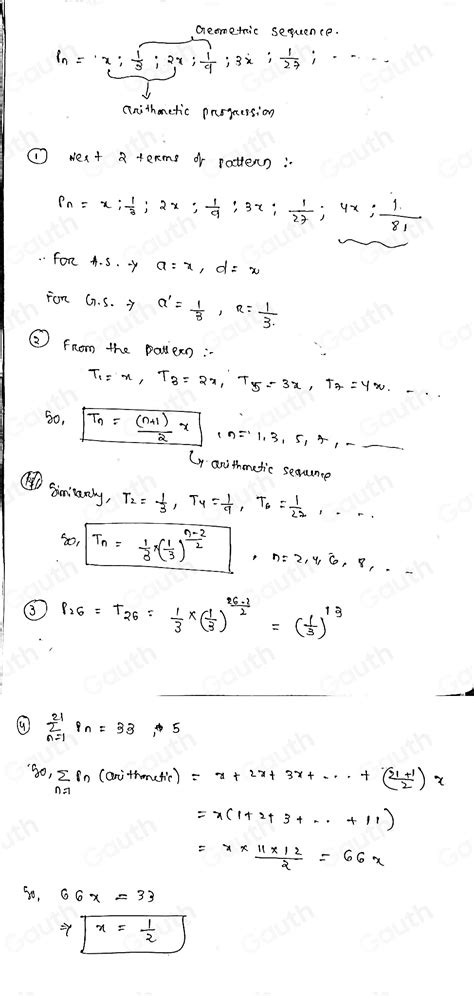 Geometric sequence.
Pn = x ; 1/3 ; 2x ; 1/9 ; 3x ; 1/27 ; - - - - -
arithmetic progression
① Next 2 terms of pattern :-
Pn = x ; 1/3 ; 2x ; 1/9 ; 3x ; 1/27 ; 4x ; 1/81
For A.S. → a = x, d = x
For G.S. → a' = 1/3 , R = 1/3.
② From the pattern :-
T1 = x, T3 = 2x, T5 = 3x, T7 = 4x. - - -
So, Tn = (n+1)/2 x , n = 1, 3, 5, 7, - ---
↳ arithmetic sequence
Similarly, T2 = 1/3, T4 = 1/9, T6 = 1/27, - - -
So, Tn = 1/3 × (1/3)^(n-2)/2 , n = 2, 4, 6, 8, - -
③ P26 = T26 = 1/3 × (1/3)^(26-2)/2 = (1/3)^13
④ 21 Σ n=1 Pn = 33, 5
So, Σ n=1 Pn (arithmetic) = x + 2x + 3x + - - - + (21+1/2) x
= x (1 + 2 + 3 + - - + 11)
= x × 11 × 12 / 2 = 66x
So, 66x = 33
⇒ x = 1/2
Gauth